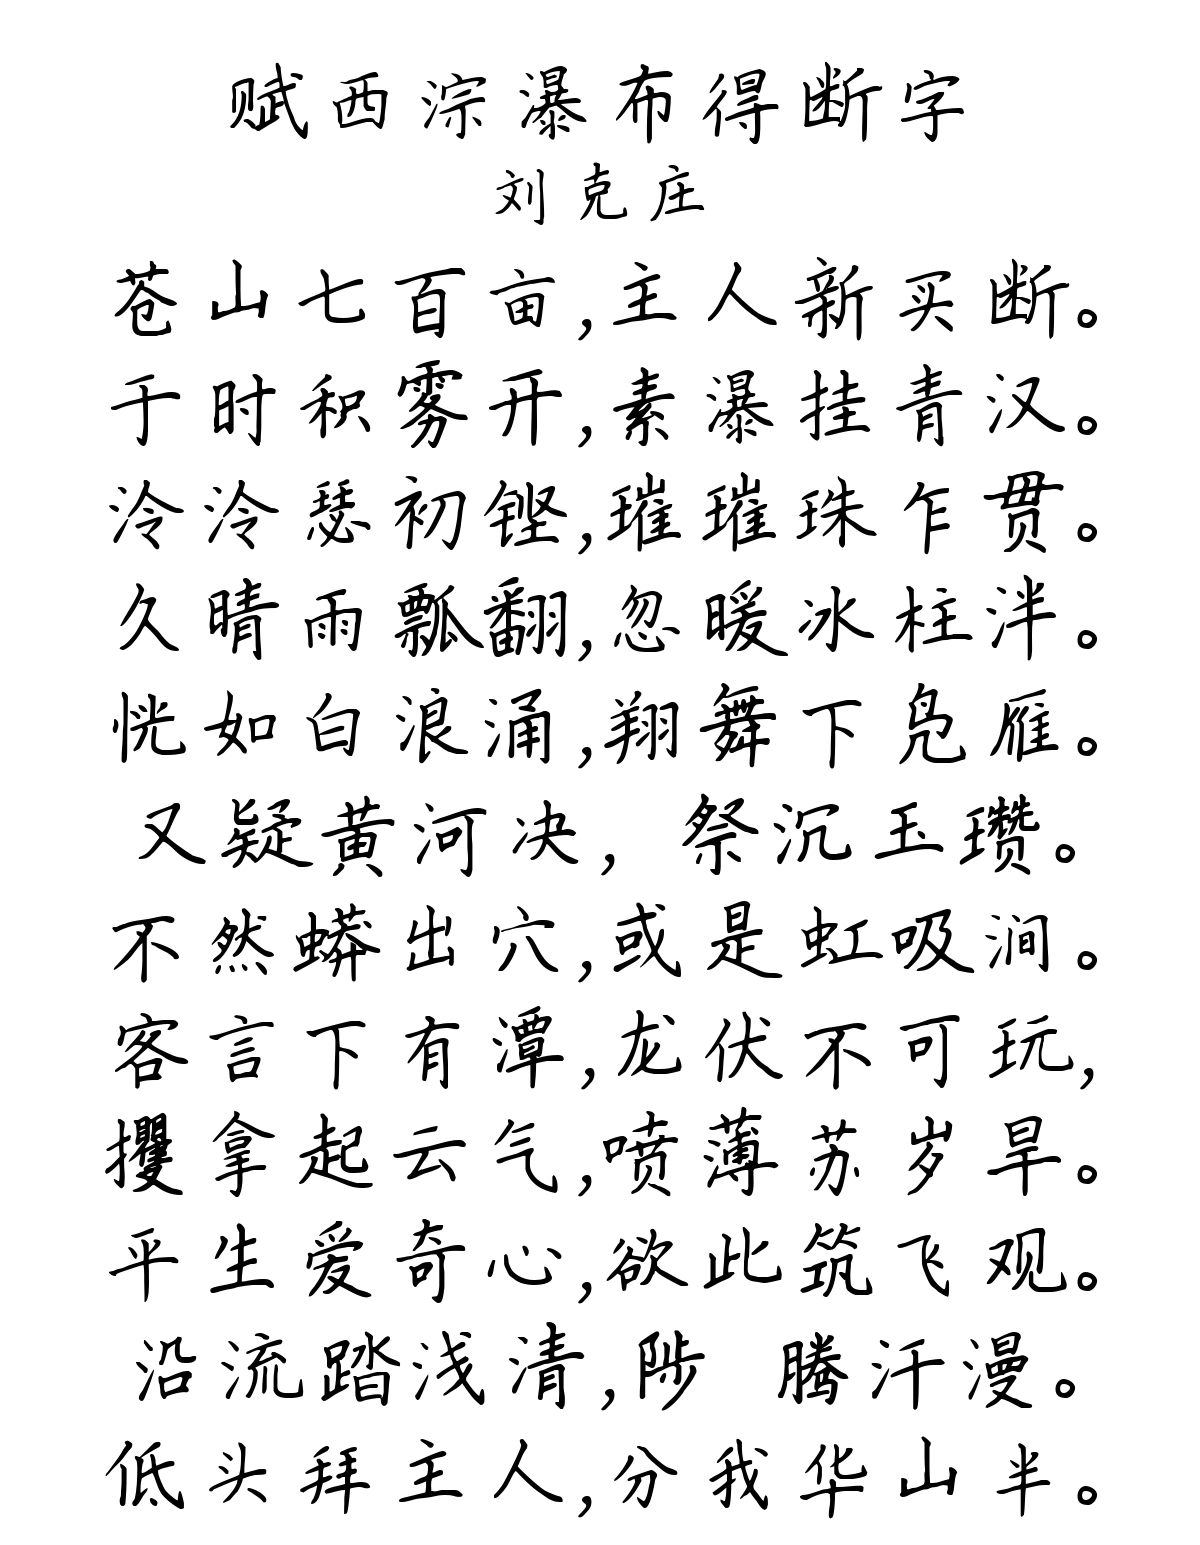 赋西淙瀑布得断字
刘克庄
苍山七百亩,主人新买断。
于时积雾开,素瀑挂青汉。
泠泠瑟初铿,璀璀珠乍贯。
久晴雨瓢翻,忽暖冰柱泮。
恍如白浪涌,翔舞下凫雁。
又疑黄河决,祭沉玉瓒。
不然蟒出穴,或是虹吸涧。
客言下有潭,龙伏不可玩,
攫拿起云气,喷薄苏岁旱。
平生爱奇心,欲此筑飞观。
沿流踏浅清,陟 腾汗漫。
低头拜主人,分我华山半。